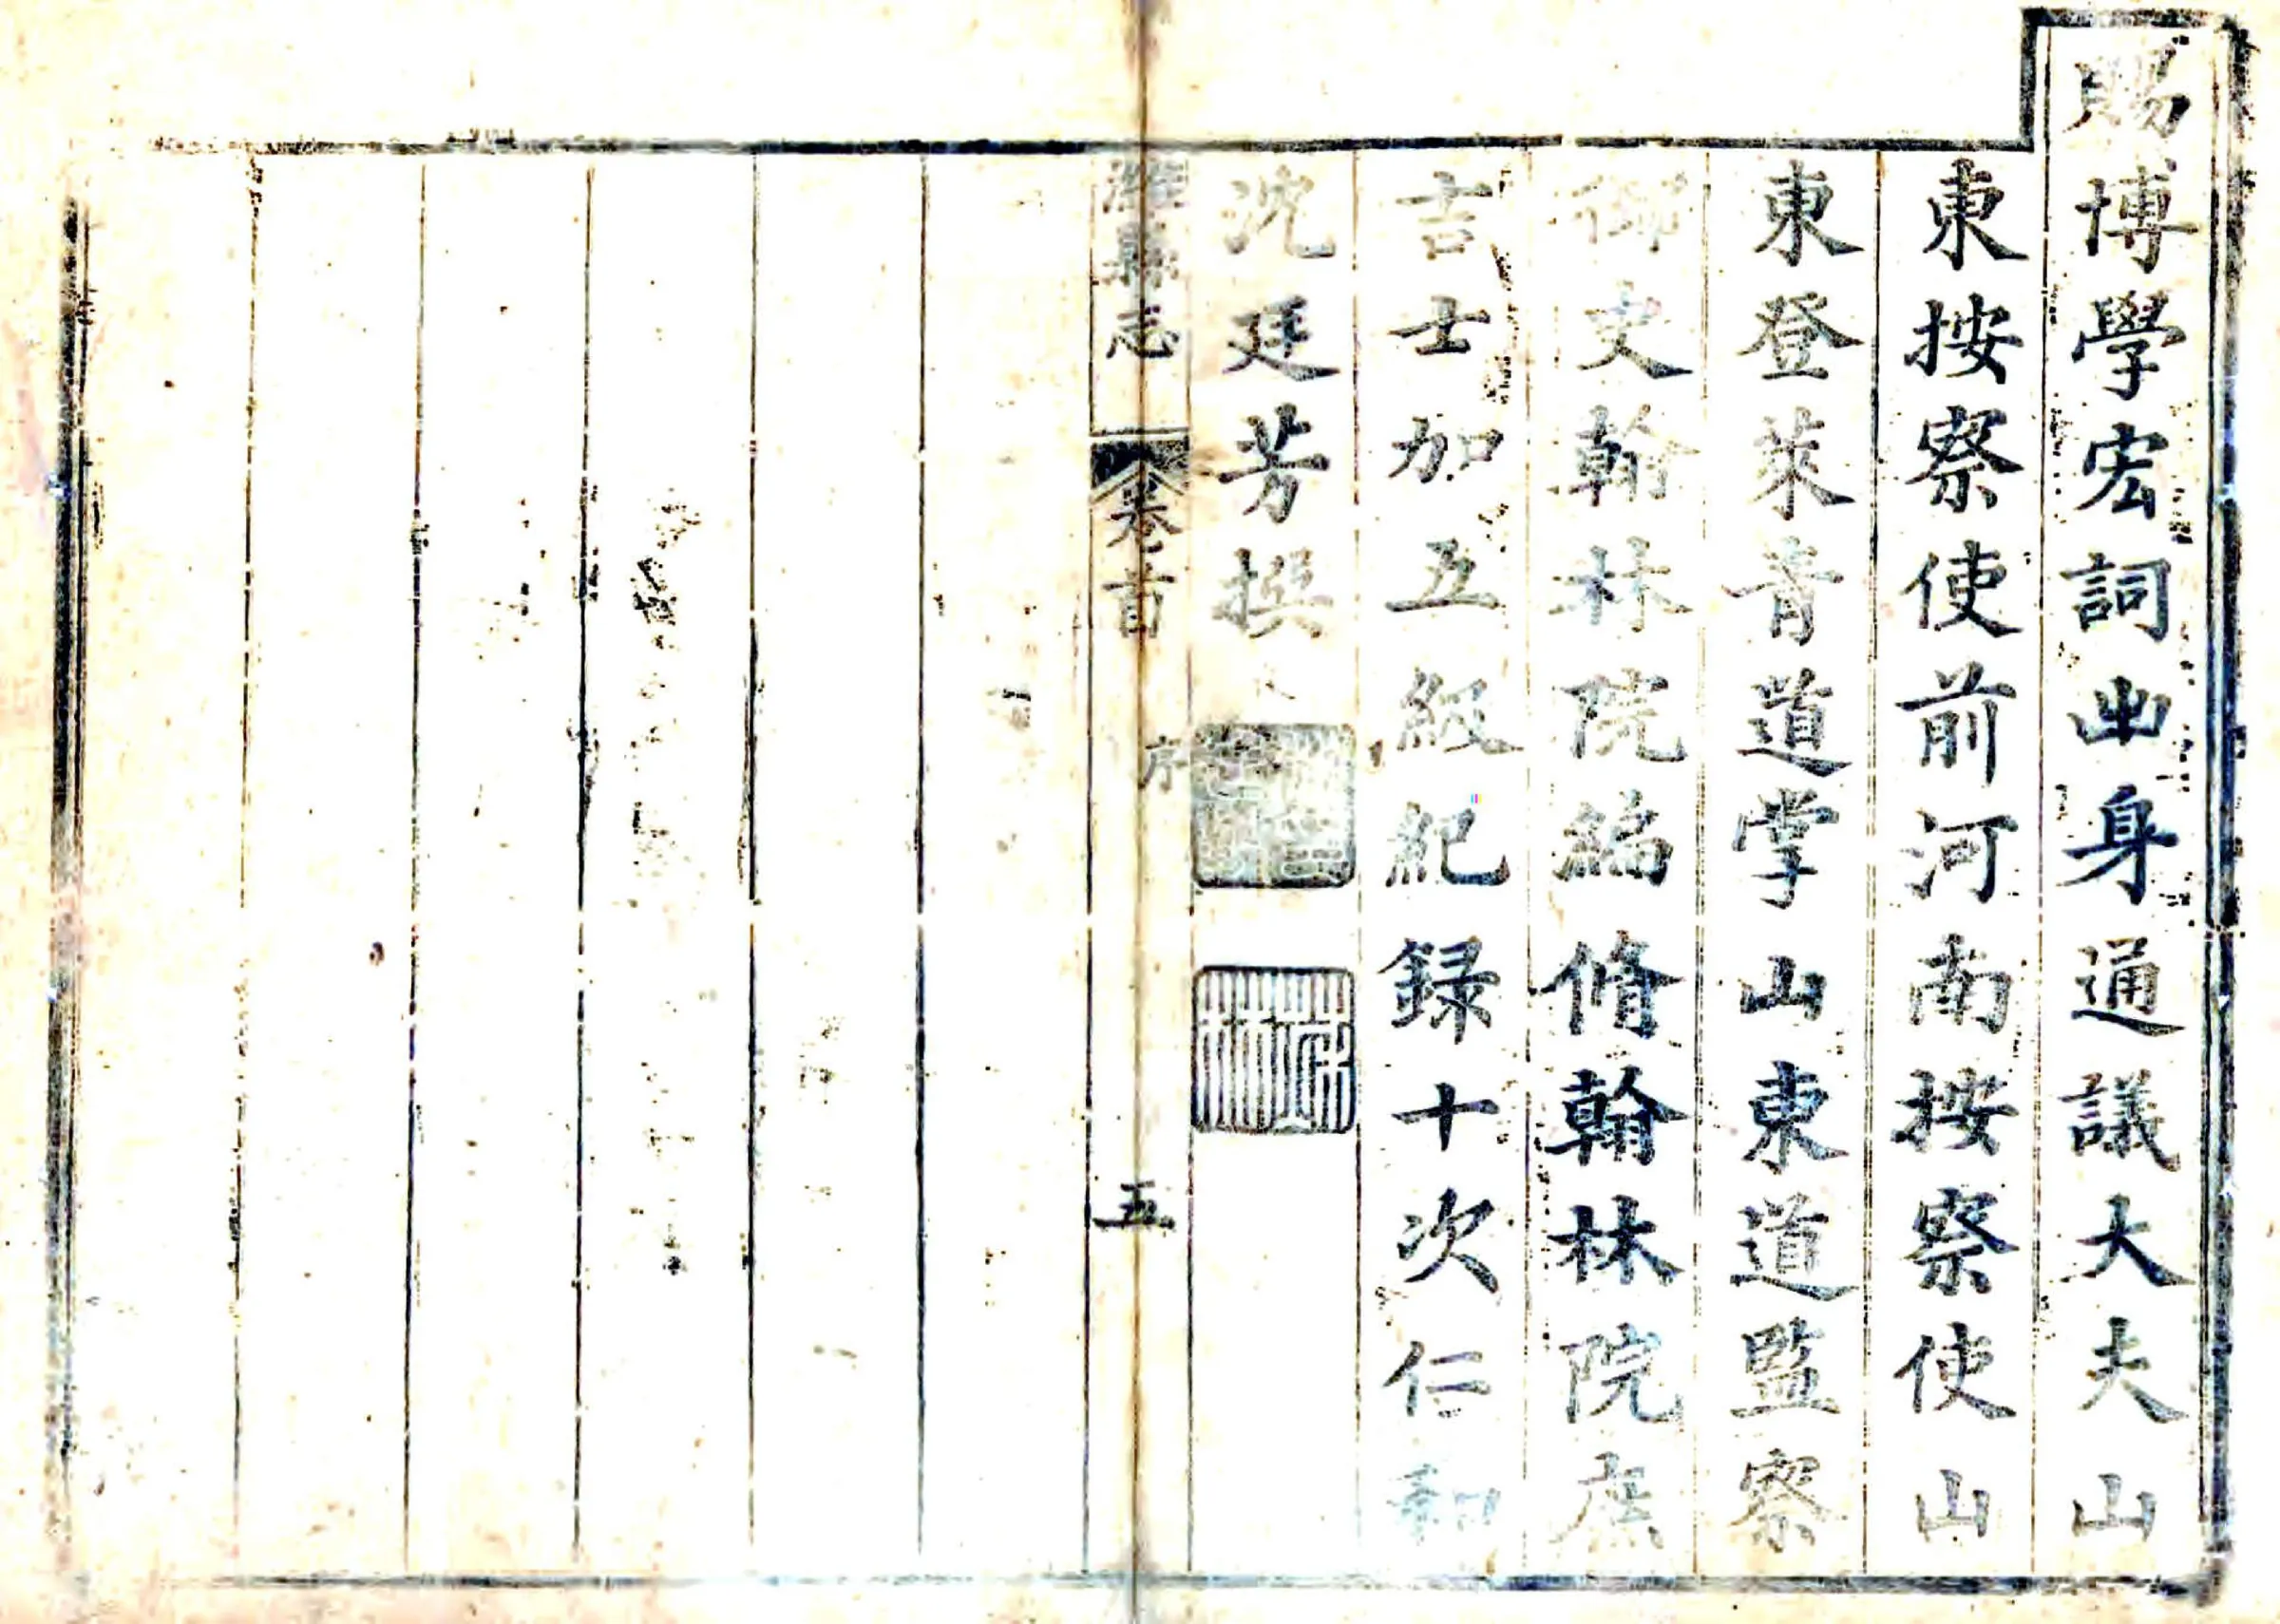 賜博學宏詞出身通議大夫山
東按察使前河南按察使山
東登萊青道掌山東道監察
御史翰林院編脩翰林院庶
吉士加五級紀録十次仁和
沈廷芳撰
濰縣志
卷首
序
五